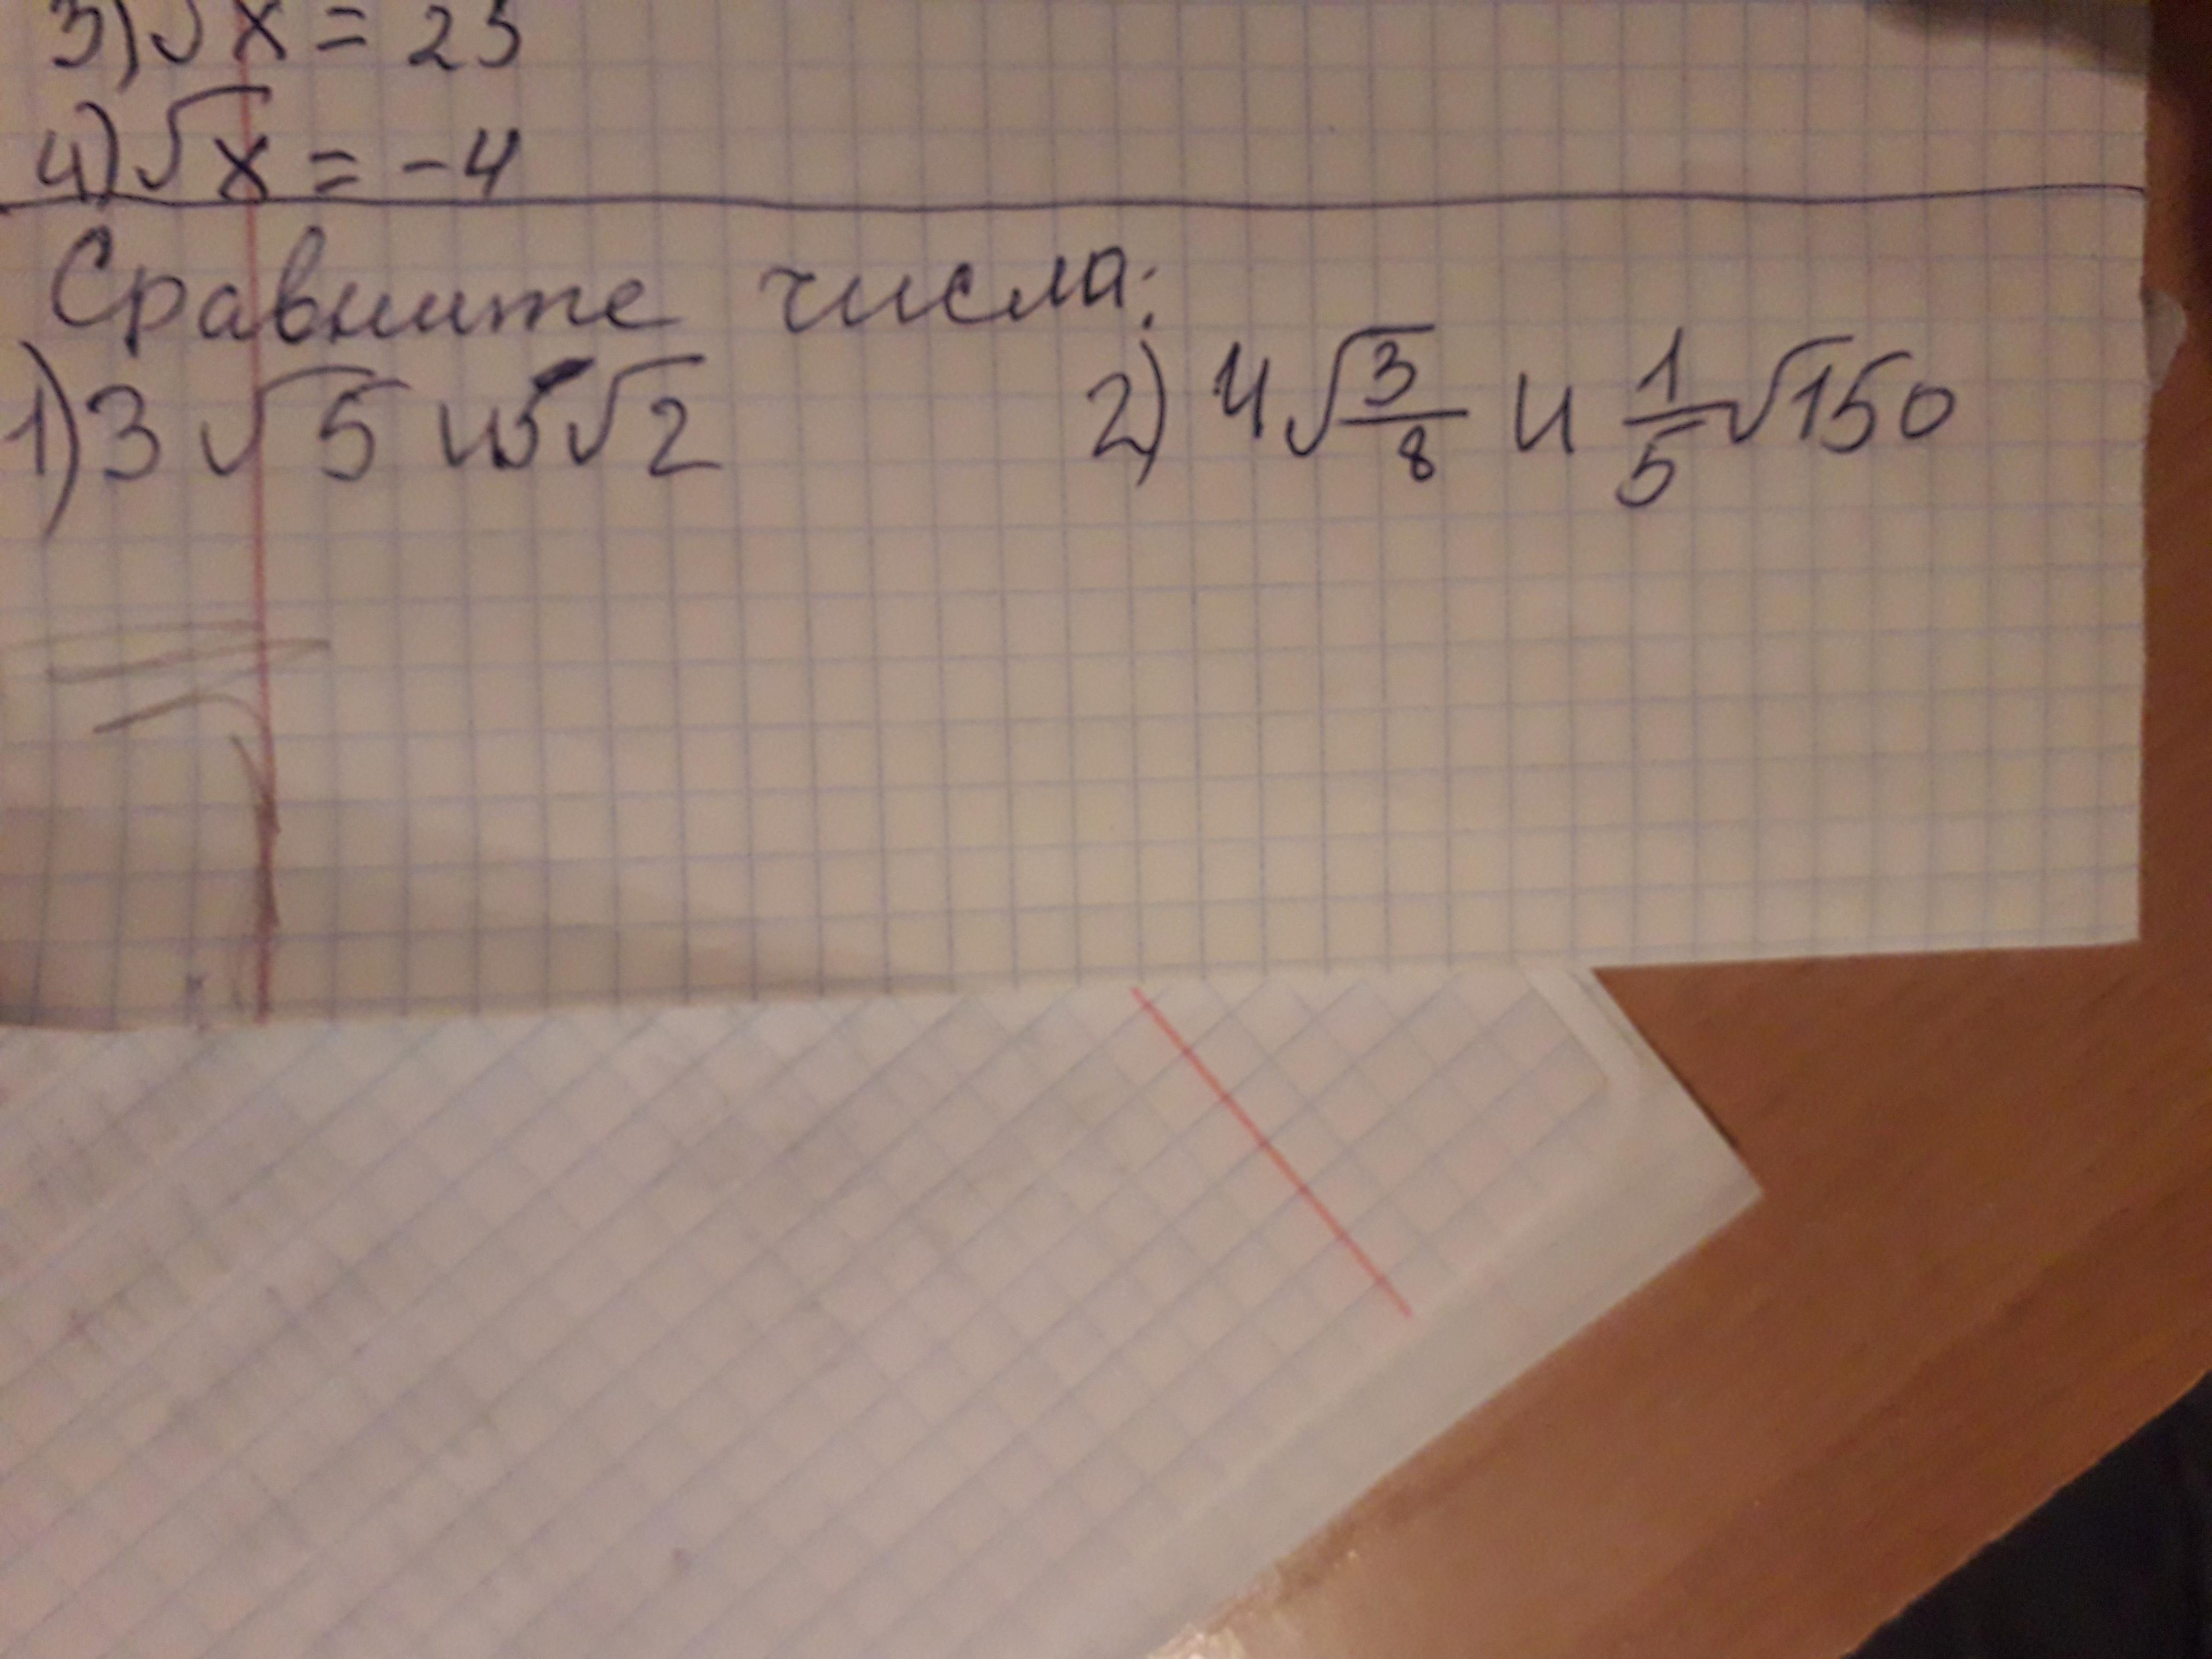 3) √x = 25
4) √x = -4
Сравните числа:
1) 3√5 и 5√2 2) 4√3/8 и 1/5√150